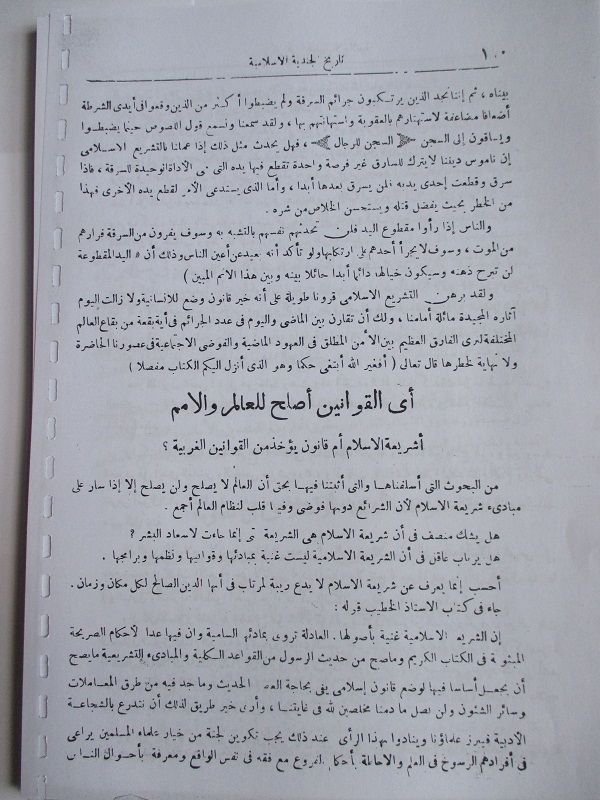 ١٠٠
تاريخ الجندية الاسلامية
بيناه ، ثم إننا نجد الذين يرتكبون جرائم السرقة ولم يضبطوا أكثر من الذين وقعوا فى أيدى الشرطة
أضعافا مضاعفة لاستهتارهم بالعقوبة واستهانتهم بها ، ولقد سمعنا ونسمع قول اللصوص حينما يضبطوا
ويساقون إلى السجن « السجن للرجال » ، فهل يحدث مثل ذلك إذا عملنا بالتشريع الاسلامى
إن ناموس ديننا لايترك للسارق غير فرصة واحدة تقطع فيها يده التى هى الأداة الوحيدة للسرقة ، فاذا
سرق وقطعت إحدى يديه فلن يسرق بعدها أبدا ، وأما الذى يستدعى الأمر لقطع يده الأخرى فهذا
من الخطر بحيث يفضل قتله ويستحسن الخلاص من شره .
والناس إذا رأوا مقطوع اليد فلن تحدثهم نفسهم بالتشبه به وسوف يفرون من السرقة فرارهم
من الموت ، وسوف لايجرأ أحدهم على ارتكابها ولو تأكد أنه بعيد عن أعين الناس وذلك أن « اليد المقطوعة
لن تبرح ذهنه وسيكون خيالها دائما أبدا حائلا بينه وبين هذا الاثم المبين )
ولقد برهن التشريع الاسلامى قرونا طويلة على أنه خير قانون وضع للانسانية ولا زالت اليوم
آثاره المجيدة ماثلة أمامنا ، ولك أن تقارن بين الماضى واليوم فى عدد الجرائم فى أية بقعة من بقاع العالم
المختلفة لترى الفارق العظيم بين الأمن المطلق فى العهود الماضية والفوضى الاجتماعية فى عصورنا الحاضرة
ولا نهاية لخطرها قال تعالى ( أفغير الله أبتغى حكما وهو الذى أنزل اليكم الكتاب مفصلا )
أى القوانين أصلح للعالم والأمم
أشريعة الاسلام أم قانون يؤخذ من القوانين الغربية ؟
من البحوث التى أسلفناها والتى أثبتنا فيها بحق أن العالم لا يصلح ولن يصلح إلا إذا سار على
مبادىء شريعة الاسلام لأن الشرائع دونها فوضى وفيها قلب لنظام العالم أجمع .
هل يشك منصف فى أن شريعة الاسلام هى الشريعة التى إنما جاءت لاسعاد البشر ؟
هل يرتاب عاقل فى أن الشريعة الاسلامية ليست غنية بمبادئها وقوانينها ونظمها وبرامجها .
أحسب إنما يعرف عن شريعة الاسلام لا يدع ريبة لمرتاب فى أنها الدين الصالح لكل مكان وزمان .
جاء فى كتاب الاستاذ الخطيب قوله :
إن الشريعة الاسلامية غنية بأصولها . العادلة تروى بمبادئها السامية وان فيها عدا الأحكام الصريحة
المبثوثة فى الكتاب الكريم وماصح من حديث الرسول من القواعد الكلية والمبادىء التشريعية مايصح
أن يجعل أساسا فيها لوضع قانون إسلامى يفى بحاجة العصر الحديث وما جد فيه من طرق المعاملات
وسائر الشئون ولن نصل ما دمنا مخلصين لله فى غايتنا ، وأرى خير طريق لذلك أن نتدرع بالشجاعة
الأدبية فيبرز علماؤنا وينادوا بهذا الرأى عند ذلك يجب تكوين لجنة من خيار علماء المسلمين يراعى
فى أفرادهم الرسوخ فى العلم والاحاطة بأحكام الفروع مع فقه فى نفس الواقع ومعرفة بأحوال الناس